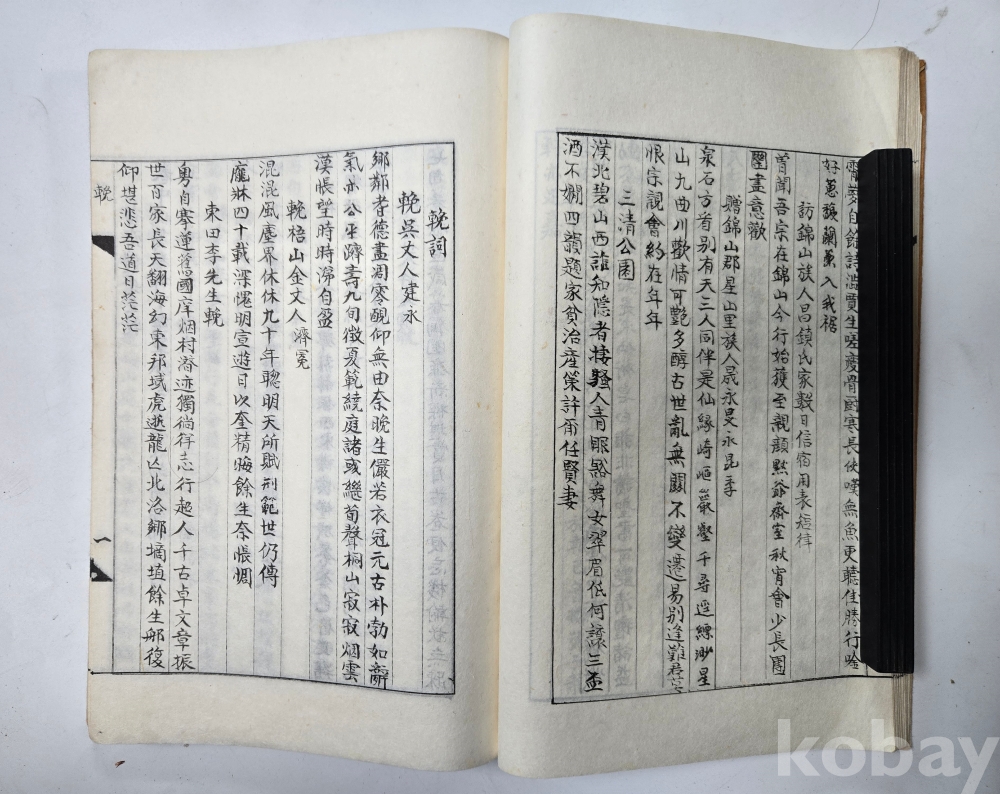 好蔥韻蘭薰入我裾
訪錦山族人昌鎮氏家數日信宿用表短律
曾聞吾宗在錦山今行始獲至親顔黙爺齋室秋宵會少長團
圞盡意歡
贈錦山郡星山里族人晟永旻永昆季
泉石方看别有天三人同伴是仙緣崎嶇巖壑千尋逕縹渺星
山九曲川歡情可艶多醇古世亂無關不變遷易别逢難
恨宗親會約在年年
三清公園
漢北碧山西誰知隱者捿騷人青眼豁舞女翠眉低何讓三盃
酒不嫺四韻題家貧治產策許甭任賢妻
輓詞
輓吳丈人建永
鄉鄰耆德盡凋零覿仰無由奈晚生儼若衣冠元古朴勃如辭
氣亦公平躋壽九旬徵夏範繞庭諸彧繼荀聲桐山寂寂烟雲
漠悵望時時涕自盈
輓梧山金丈人濟冕
混混風塵界休休九十年聰明天所賦刑範世仍傳
龐牀四十載深懼明宣遊目以奎精晦餘生奈悵惘
東田李先生輓
粵自搴蓮舊國庠烟村潛迹獨徜徉志行起人千古卓文章振
世百家長天翻海幻東邦淢虎逝龍亡北洛鄉擿埴餘生那復
仰堪悲吾道日茫茫
輓
一
kobay